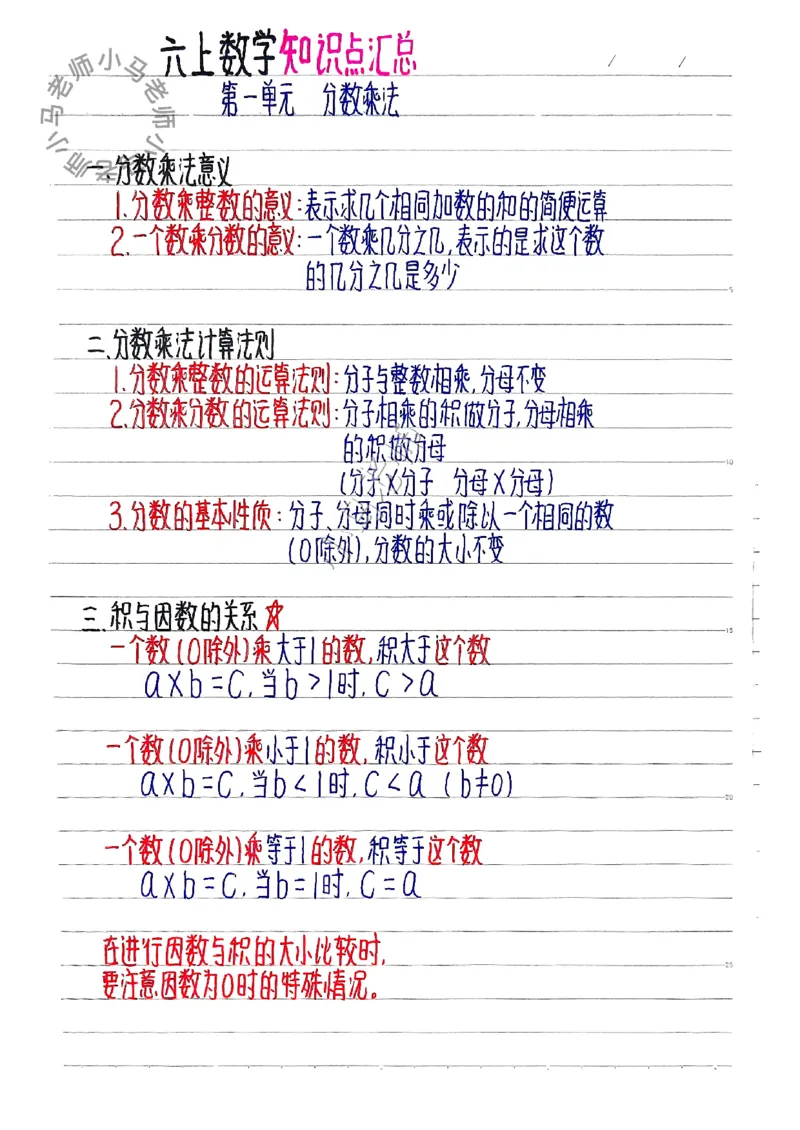 六上数学知识点汇总
第一单元 分数乘法
小马老师小马老师小马老师
一.分数乘法意义
1.分数乘整数的意义:表示求几个相同加数的和的简便运算
2.一个数乘分数的意义:一个数乘几分之几,表示的是求这个数
的几分之几是多少
二.分数乘法计算法则
1.分数乘整数的运算法则:分子与整数相乘,分母不变
2.分数乘分数的运算法则:分子相乘的积做分子,分母相乘
的积做分母
(分子×分子 分母×分母)
3.分数的基本性质:分子、分母同时乘或除以一个相同的数
(0除外),分数的大小不变
三.积与因数的关系☆
一个数(0除外)乘大于1的数,积大于这个数
a×b=c,当b>1时,c>a
一个数(0除外)乘小于1的数,积小于这个数
a×b=c,当b<1时,c<a (b≠0)
一个数(0除外)乘等于1的数,积等于这个数
a×b=c,当b=1时,c=a
在进行因数与积的大小比较时,
要注意因数为0时的特殊情况。
5
10
15
20
25